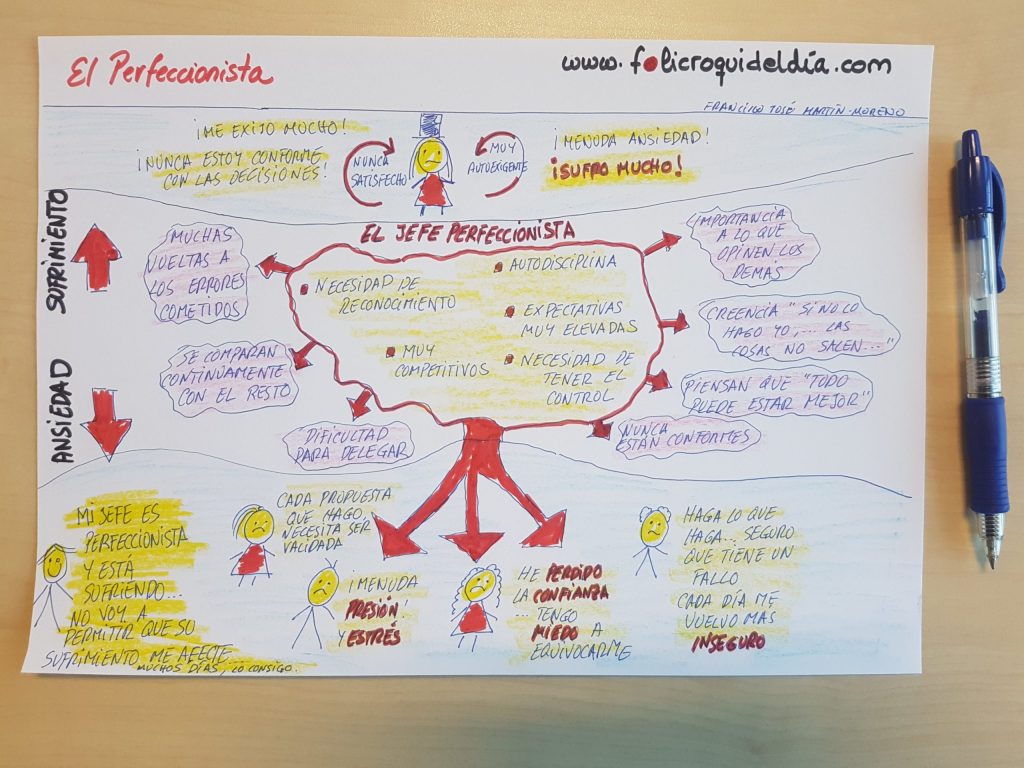 El Perfeccionista
www.folicroquideldía.com
FRANCISCO JOSÉ MARTÍN-MORENO
¡ME EXIJO MUCHO!
¡NUNCA ESTOY CONFORME
CON LAS DECISIONES!
NUNCA
SATISFECHO
MUY
AUTOEXIGENTE
¡MENUDA ANSIEDAD!
¡SUFRO MUCHO!
SUFRIMIENTO
ANSIEDAD
EL JEFE PERFECCIONISTA
NECESIDAD DE
RECONOCIMIENTO
AUTODISCIPLINA
EXPECTATIVAS
MUY ELEVADAS
MUY
COMPETITIVOS
NECESIDAD DE
TENER EL
CONTROL
MUCHAS
VUELTAS A
LOS ERRORES
COMETIDOS
SE COMPARAN
CONTINUAMENTE
CON EL RESTO
DIFICULTAD
PARA DELEGAR
IMPORTANCIA
A LO QUE
OPINEN LOS
DEMÁS
CREENCIA "SI NO LO
HAGO YO,... LAS
COSAS NO SALEN..."
PIENSAN QUE "TODO
PUEDE ESTAR MEJOR"
NUNCA
ESTÁN CONFORMES
MI JEFE ES
PERFECCIONISTA
Y ESTÁ
SUFRIENDO...
NO VOY A
PERMITIR QUE SU
SUFRIMIENTO ME AFECTE...
MUCHOS DÍAS, LO CONSIGO.
CADA PROPUESTA
QUE HAGO,
NECESITA SER
VALIDADA
¡MENUDA
PRESIÓN!
Y ESTRÉS
HE PERDIDO
LA CONFIANZA
... TENGO
MIEDO A
EQUIVOCARME
HAGA LO QUE
HAGA.. SEGURO
QUE TIENE UN
FALLO
CADA DÍA ME
VUELVO MAS
INSEGURO